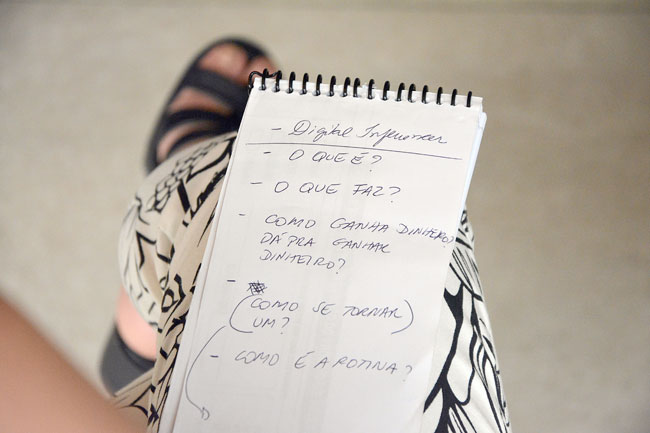 - Digital Influencer
- O QUE É?
- O QUE FAZ?
- COMO GANHA DINHEIRO?
DÁ PRA GANHAR
DINHEIRO?
-
(COMO SE TORNAR
UM?)
- COMO É A ROTINA?